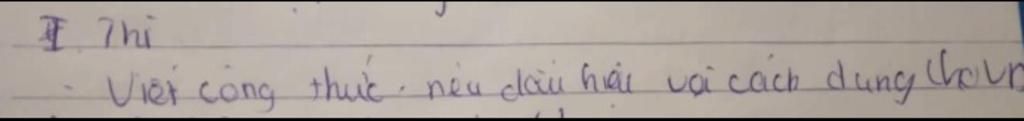 I Thì
- Viết công thức. nêu dấu hiệu và cách dùng